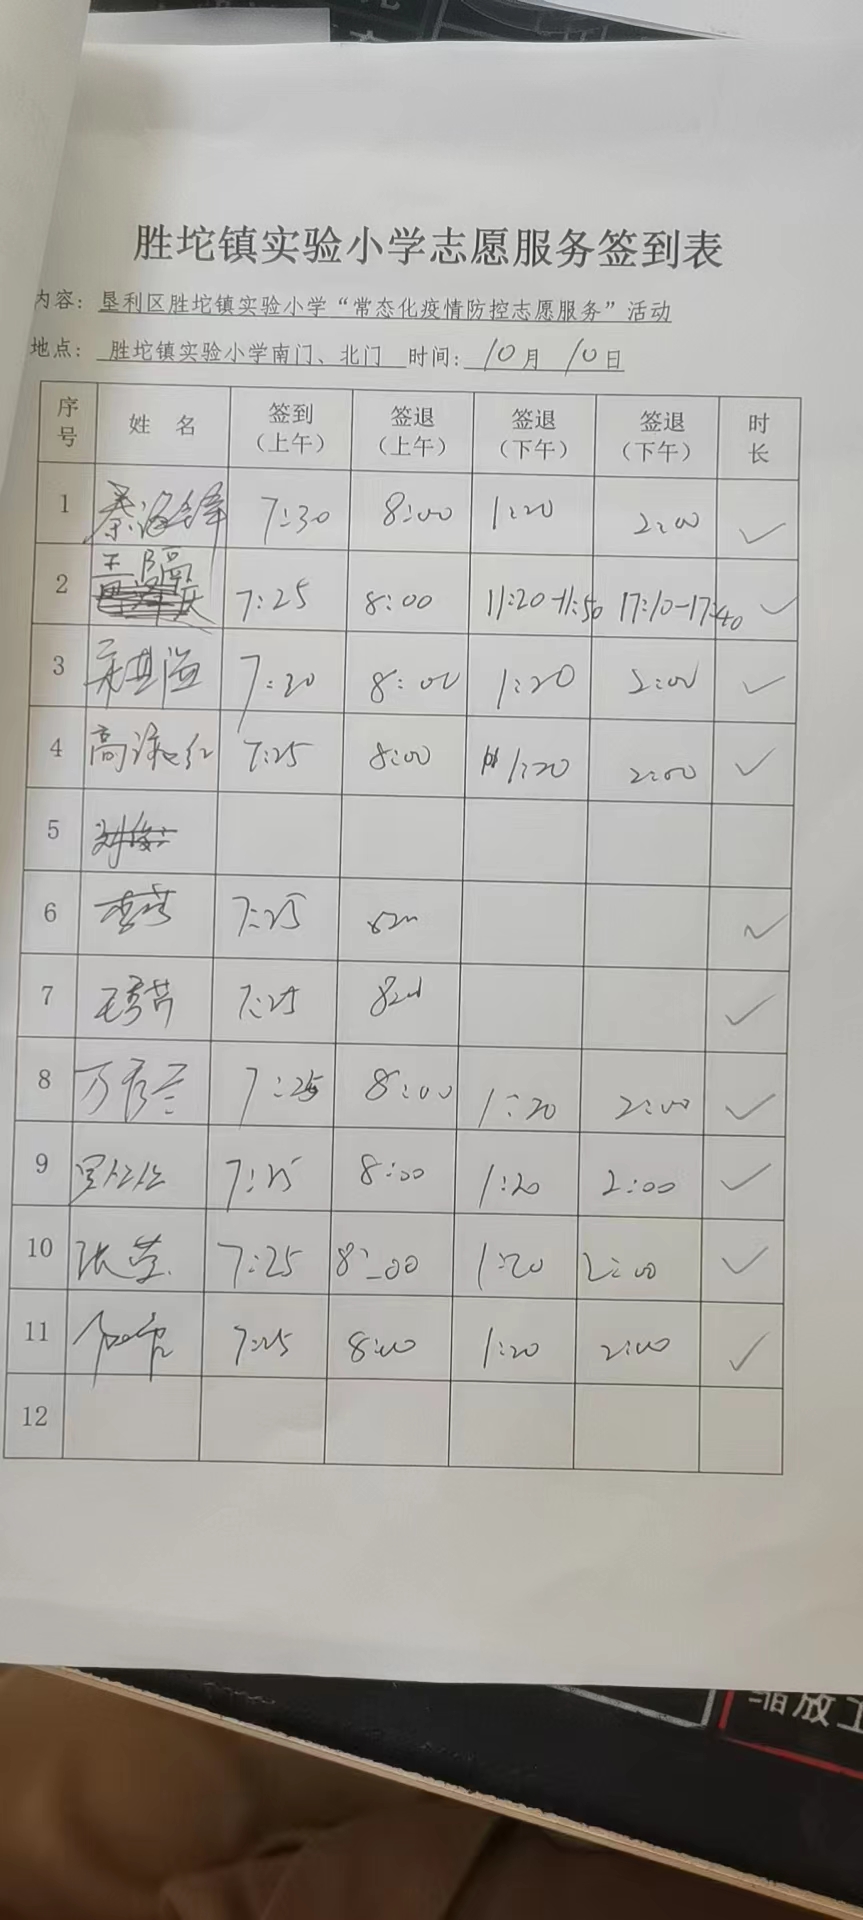 胜坨镇实验小学志愿服务签到表
内容：垦利区胜坨镇实验小学“常态化疫情防控志愿服务”活动
地点：胜坨镇实验小学南门、北门 时间：10月10日
序号 姓 名 签到（上午） 签退（上午） 签退（下午） 签退（下午） 时长
1 7:30 8:00 1:20 2:00 ✓
2 7:25 8:00 11:20-11:50 17:10-17:40 ✓
3 7:20 8:00 1:20 2:00 ✓
4 7:25 8:00 1:20 2:00 ✓
5
6 7:25 ✓
7 7:25 ✓
8 万秀兰 7:25 8:00 1:20 2:00 ✓
9 7:25 8:00 1:20 2:00 ✓
10 7:25 8:00 1:20 2:00 ✓
11 7:25 8:00 1:20 2:00 ✓
12
缩放